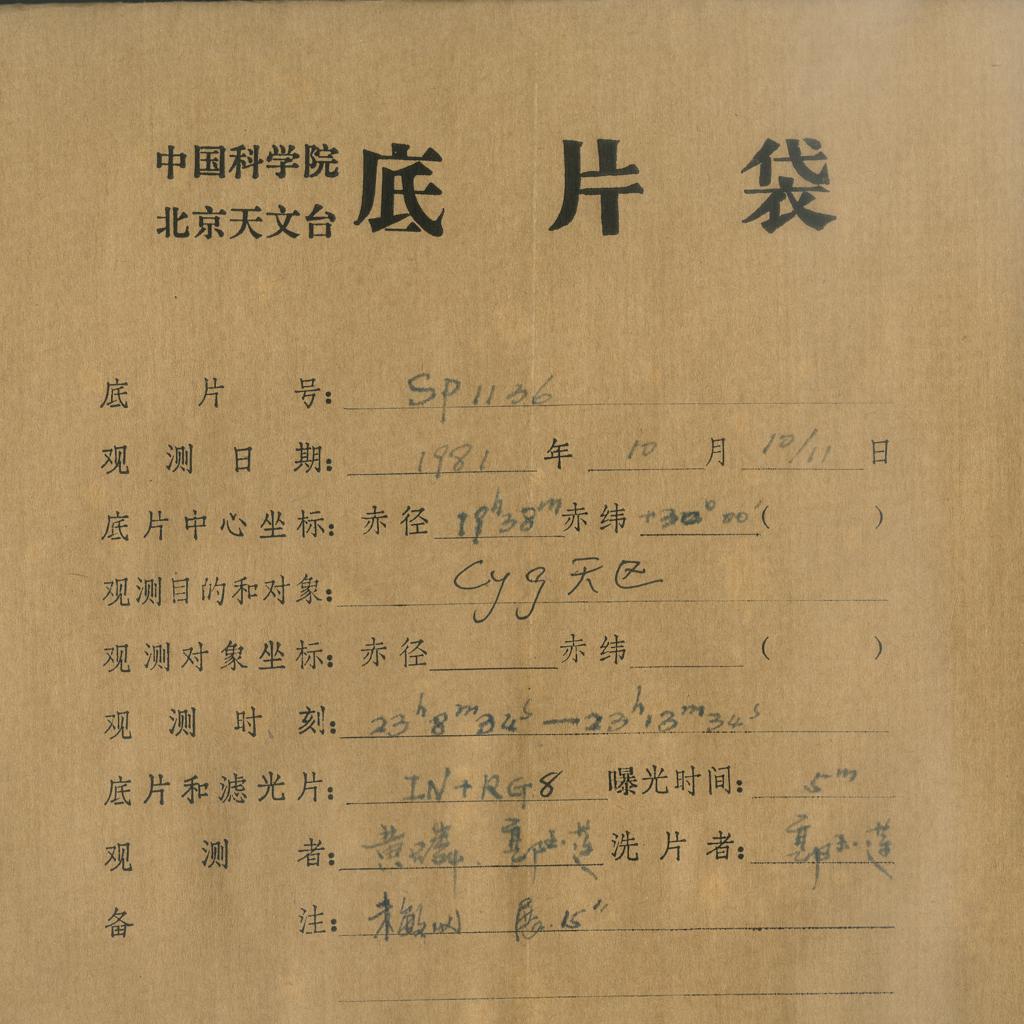 中国科学院
北京天文台
底片袋
底片号：SP1136
观测日期：1981年10月10/11日
底片中心坐标：赤径19h38m赤纬+30°00′（ ）
观测目的和对象：Cyg天区
观测对象坐标：赤径 赤纬 （ ）
观测时刻：23h8m34s—23h13m34s
底片和滤光片：IN+RG8 曝光时间：5m
观测者：黄磷、 洗片者：
备注：未敏化 展15″